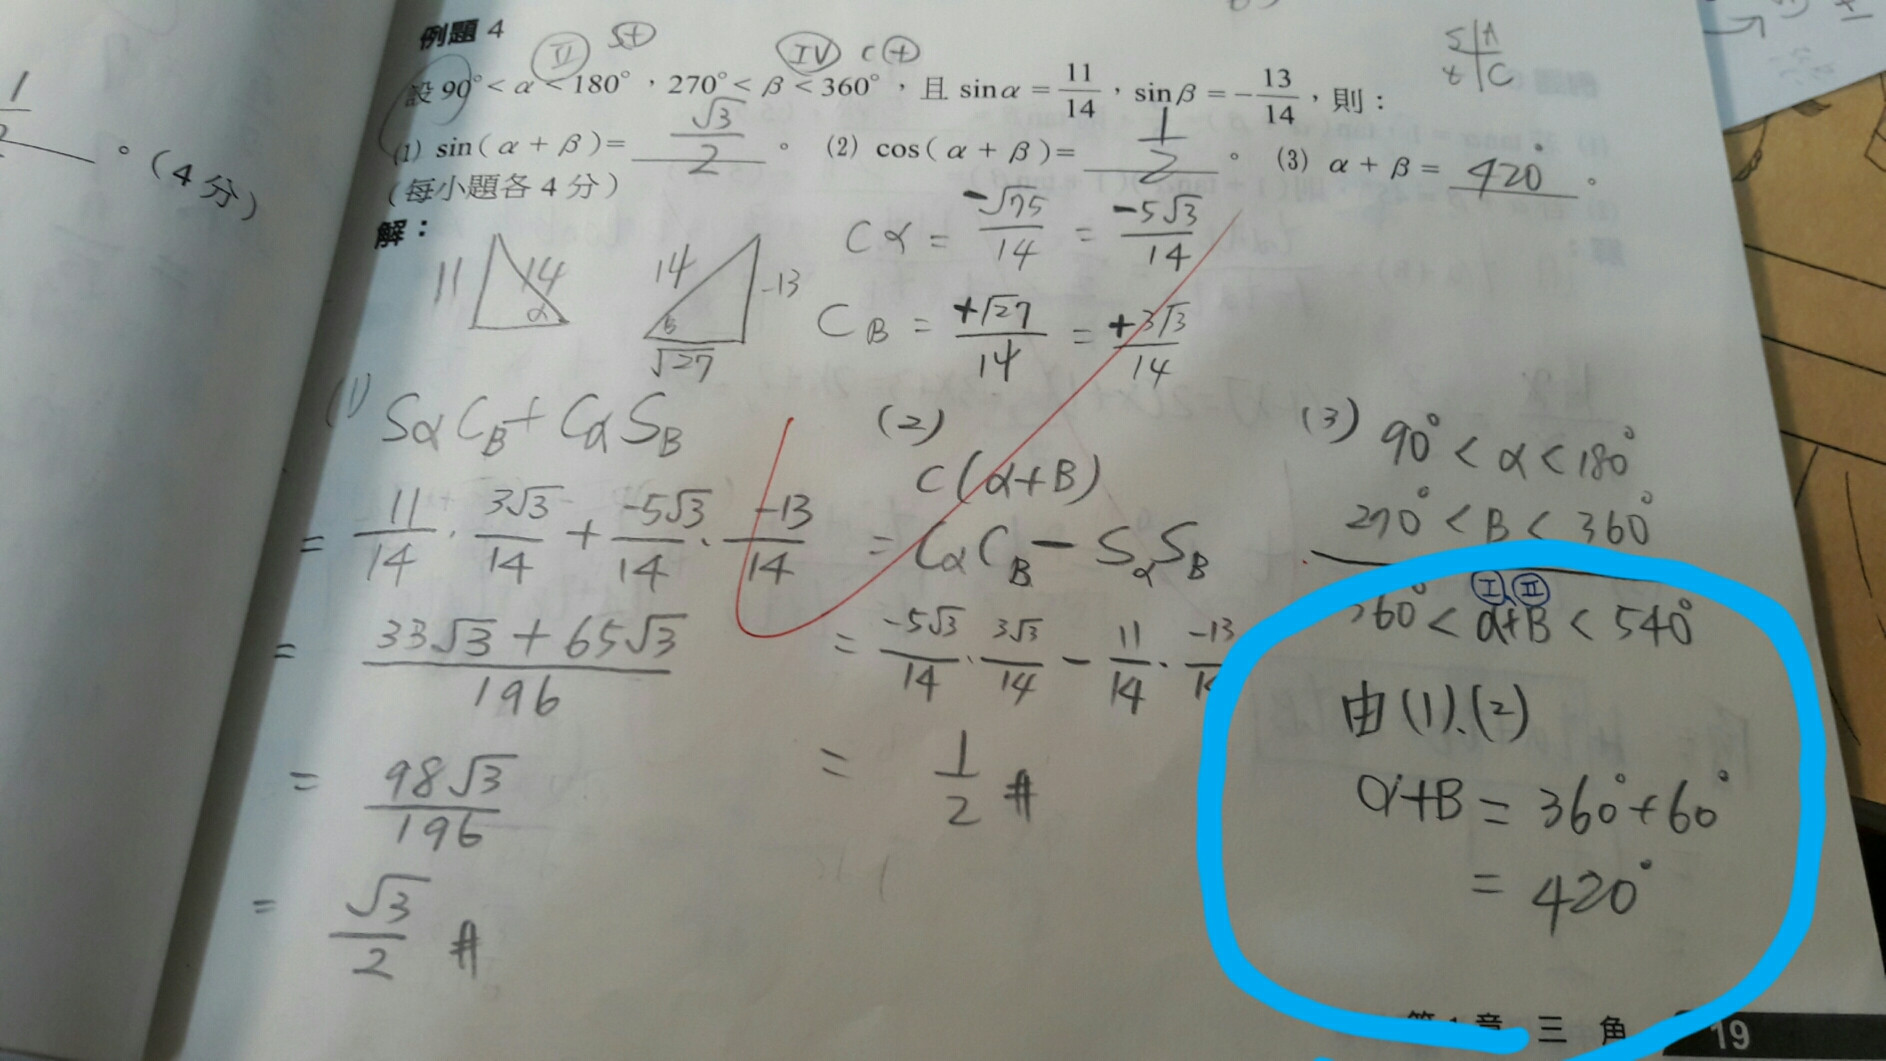 例題 4
II S+ IV C+
S A
t C
設 90° < α < 180°，270° < β < 360°，且 sinα = 11/14，sinβ = -13/14，則：
(1) sin(α + β) = √3/2 。 (2) cos(α + β) = 1/2 。 (3) α + β = 420° 。
(每小題各 4 分)
1
。(4 分)
解：
11 14 α
14 -13 B √27
Cα = -√75/14 = -5√3/14
CB = +√27/14 = +3√3/14
(1) SαCB + CαSB
= 11/14 · 3√3/14 + -5√3/14 · -13/14
= 33√3 + 65√3 / 196
= 98√3/196
= √3/2 #
(2)
C(α+B)
= CαCB - SαSB
= -5√3/14 · 3√3/14 - 11/14 · -13/1
= 1/2 #
(3) 90° < α < 180°
270° < B < 360°
I、II
360° < α+B < 540°
由(1).(2)
α+B = 360° + 60°
= 420°
第 1 章 三 角 19